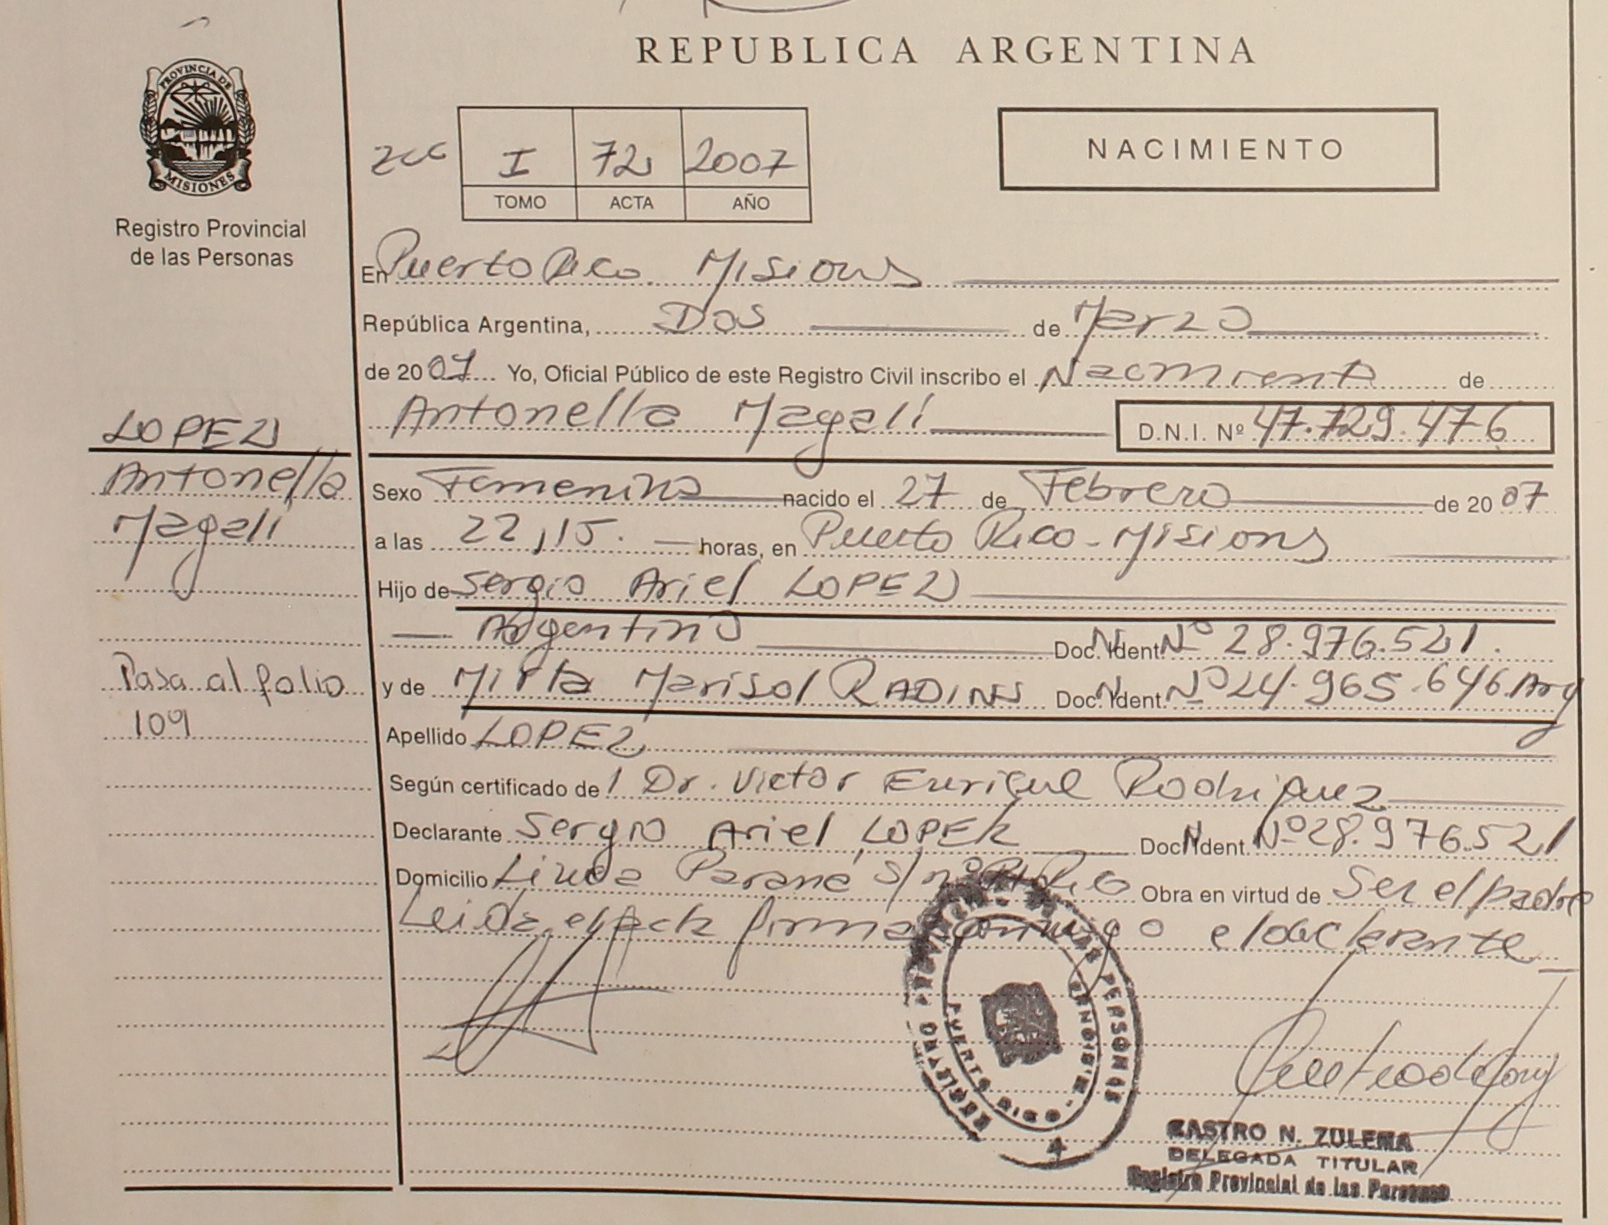 REPUBLICA ARGENTINA
PROVINCIA DE
MISIONES
Registro Provincial
de las Personas
I 72 2007
TOMO ACTA AÑO
NACIMIENTO
En Puerto Rico Misiones
República Argentina, Dos de Marzo
de 2007 Yo, Oficial Público de este Registro Civil inscribo el Nacimiento de
Antonella Magalí D.N.I. Nº 47.729.476
LOPEZ
Antonella
Magalí
Pasa al folio
109
Sexo Femenino nacido el 27 de Febrero de 2007
a las 22,15. horas, en Puerto Rico - Misiones
Hijo de Sergio Ariel LOPEZ
Argentino Doc. Ident. Nº 28.976.521.
y de Mirta Marisol RADINS Doc. Ident. Nº 24.965.646. Arg
Apellido LOPEZ
Según certificado de l Dr. Victor Enrique Rodriguez
Declarante Sergio Ariel LOPEZ Doc. Ident. Nº 28.976.521
Domicilio Linea Parana s/nº Pto Rico Obra en virtud de Ser el padre
Leida el acta firma conmigo el declarante
REGISTRO PROVINCIAL DE LAS PERSONAS
PUERTO RICO MISIONES
CASTRO N. ZULEMA
DELEGADA TITULAR
Registro Provincial de las Personas